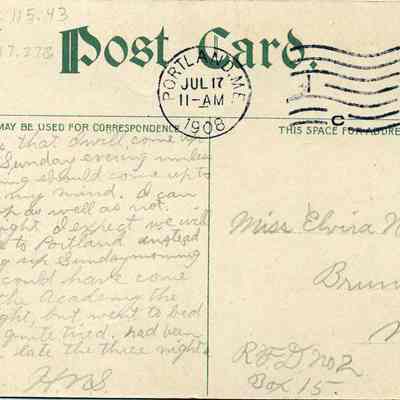 115.43
17.278
Post Card.
PORTLAND, ME.
JUL 17
11-AM
1908
C
MAY BE USED FOR CORRESPONDENCE
THIS SPACE FOR ADDRE
that I will come up
Sunday evening unless
ing should come up to
my mind. I can
as well as not.
ght I expect we will
to Portland instead
up Sunday morning
could have come
the Academy the
ght, but went to bed
quite tired. had been
late the three nights
H.N.S.
Miss Elvira N
Brun
R F D No 2
Box 15.